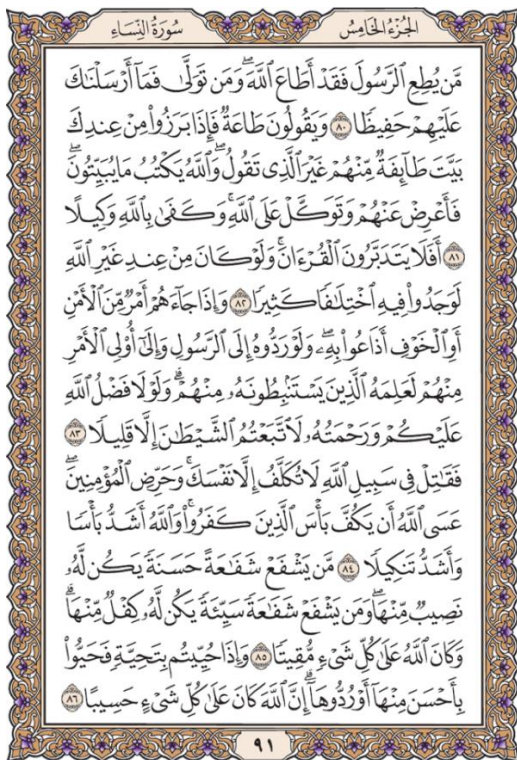 الجُزْءُ الخَامِسُ سُورَةُ النِّسَاءِ
مَّن يُطِعِ ٱلرَّسُولَ فَقَدْ أَطَاعَ ٱللَّهَۖ وَمَن تَوَلَّىٰ فَمَآ أَرْسَلْنَٰكَ
عَلَيْهِمْ حَفِيظٗا ٨٠ وَيَقُولُونَ طَاعَةٞ فَإِذَا بَرَزُوا۟ مِنْ عِندِكَ
بَيَّتَ طَآئِفَةٞ مِّنْهُمْ غَيْرَ ٱلَّذِى تَقُولُۖ وَٱللَّهُ يَكْتُبُ مَا يُبَيِّتُونَۖ
فَأَعْرِضْ عَنْهُمْ وَتَوَكَّلْ عَلَى ٱللَّهِۚ وَكَفَىٰ بِٱللَّهِ وَكِيلًا
٨١ أَفَلَا يَتَدَبَّرُونَ ٱلْقُرْءَانَۚ وَلَوْ كَانَ مِنْ عِندِ غَيْرِ ٱللَّهِ
لَوَجَدُوا۟ فِيهِ ٱخْتِلَٰفٗا كَثِيرٗا ٨٢ وَإِذَا جَآءَهُمْ أَمْرٞ مِّنَ ٱلْأَمْنِ
أَوِ ٱلْخَوْفِ أَذَاعُوا۟ بِهِۦۖ وَلَوْ رَدُّوهُ إِلَى ٱلرَّسُولِ وَإِلَىٰٓ أُو۟لِى ٱلْأَمْرِ
مِنْهُمْ لَعَلِمَهُ ٱلَّذِينَ يَسْتَنۢبِطُونَهُۥ مِنْهُمْۗ وَلَوْلَا فَضْلُ ٱللَّهِ
عَلَيْكُمْ وَرَحْمَتُهُۥ لَٱتَّبَعْتُمُ ٱلشَّيْطَٰنَ إِلَّا قَلِيلٗا ٨٣
فَقَٰتِلْ فِى سَبِيلِ ٱللَّهِ لَا تُكَلَّفُ إِلَّا نَفْسَكَۚ وَحَرِّضِ ٱلْمُؤْمِنِينَۖ
عَسَى ٱللَّهُ أَن يَكُفَّ بَأْسَ ٱلَّذِينَ كَفَرُوا۟ۚ وَٱللَّهُ أَشَدُّ بَأْسٗا
وَأَشَدُّ تَنكِيلٗا ٨٤ مَّن يَشْفَعْ شَفَٰعَةً حَسَنَةٗ يَكُن لَّهُۥ
نَصِيبٞ مِّنْهَاۖ وَمَن يَشْفَعْ شَفَٰعَةٗ سَيِّئَةٗ يَكُن لَّهُۥ كِفْلٞ مِّنْهَاۗ
وَكَانَ ٱللَّهُ عَلَىٰ كُلِّ شَىْءٖ مُّقِيتٗا ٨٥ وَإِذَا حُيِّيتُم بِتَحِيَّةٖ فَحَيُّوا۟
بِأَحْسَنَ مِنْهَآ أَوْ رُدُّوهَآۗ إِنَّ ٱللَّهَ كَانَ عَلَىٰ كُلِّ شَىْءٍ حَسِيبًا ٨٦
٩١